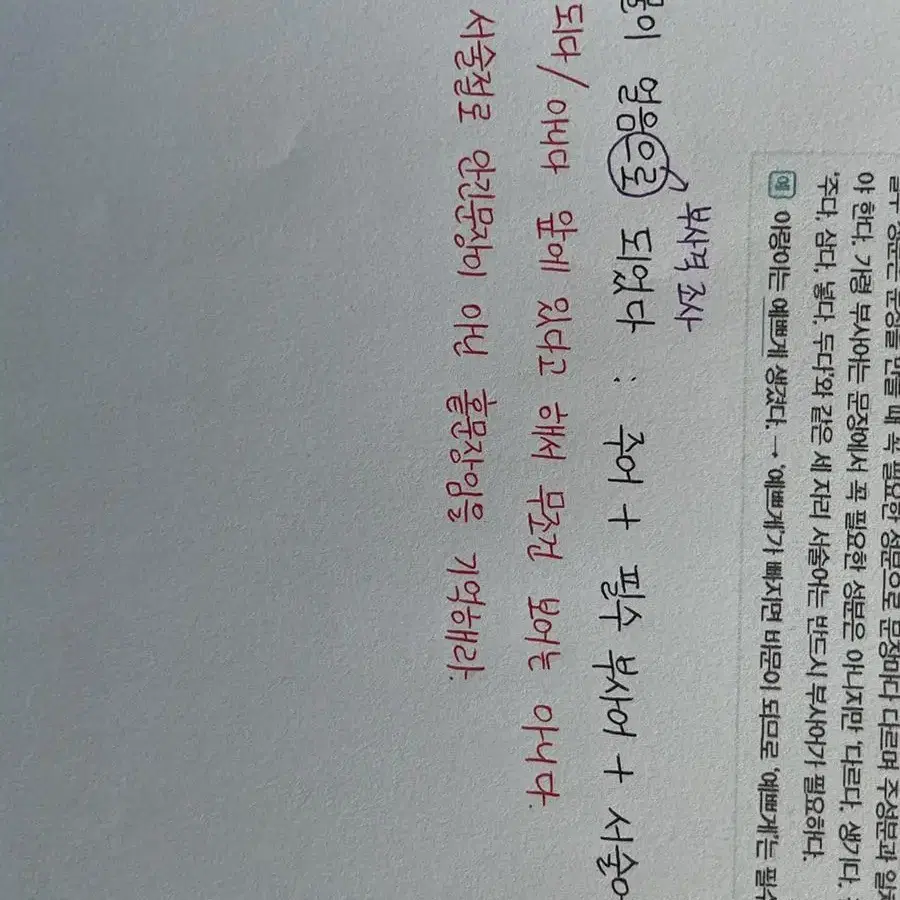 야 한다. 가령 부사어는 문장에서 꼭 필요한 성분은 아니지만 '다르다, 생기다,
'주다, 삼다, 넣다, 두다'와 같은 세 자리 서술어는 반드시 부사어가 필요하다.
예 아랑이는 예쁘게 생겼다. → '예쁘게'가 빠지면 비문이 되므로 '예쁘게'는 필수
부사격 조사
얼음으로 되었다 : 주어 + 필수 부사어 +
되다/아니다 앞에 있다고 해서 무조건 보어는 아니다.
서술절로 안긴문장이 아닌 홑문장임을 기억해라.